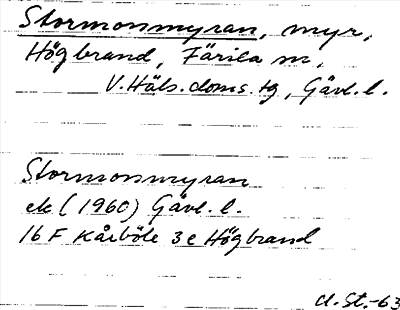 Stormonsmyran, myr,
Högbrand, Färila sn,
V. Häls. doms. tg, Gävl. l.
Stormonsmyran
ek (1960) Gävl. l.
16 F Kårböle 3 e Högbrand
d. St. -63